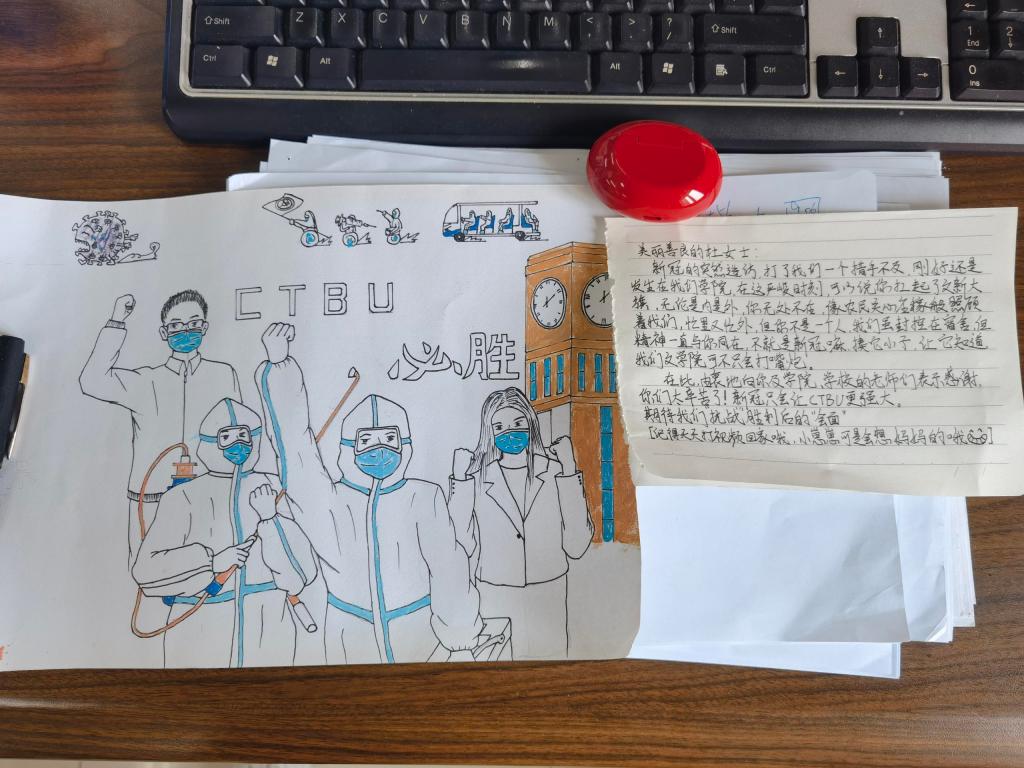 Shift Z X C V B N M < > ? / Shift ↑ 1 End 2 ↓
Ctrl Alt Alt Ctrl ← ↓ → 0 Ins
CTBU
必胜
美丽善良的杜女士:
新冠的突然造访,打了我们一个措手不及,刚好还是
发生在我们学院,在这严峻时刻,可以说你扛起了文新大
旗,无论是内是外,你无处不在,像农民关心庄稼般照顾
着我们,忙里又忙外,但你不是一个人,我们虽封控在宿舍,但
精神一直与你同在,不就是新冠嘛,揍它小子,让它知道
我们文学院可不只会打嘴炮!
在此,由衷地向你及学院、学校的老师们表示感谢,
你们太辛苦了!新冠只会让CTBU更强大。
期待我们抗战胜利后的"会面"
[记得天天打视频回家哦,小崽崽可是会想妈妈的哦]